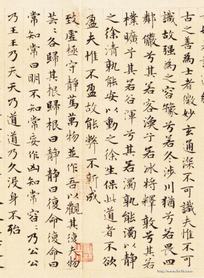 古之善為士者微妙玄通深不可識夫惟不可
識故強為之容豫兮若冬涉川猶兮若畏四
鄰儼兮其若容渙兮若冰將釋敦兮其若
樸曠兮其若谷渾兮其若濁孰能濁以靜
之徐清孰能安以動之徐生保此道者不欲
盈夫惟不盈故能弊不新成
致虛極守靜篤萬物並作吾以觀其復夫物
芸芸各歸其根歸根曰靜靜曰復命復命曰
常知常曰明不知常妄作凶知常容容乃公公
乃王王乃天天乃道道乃久沒身不殆